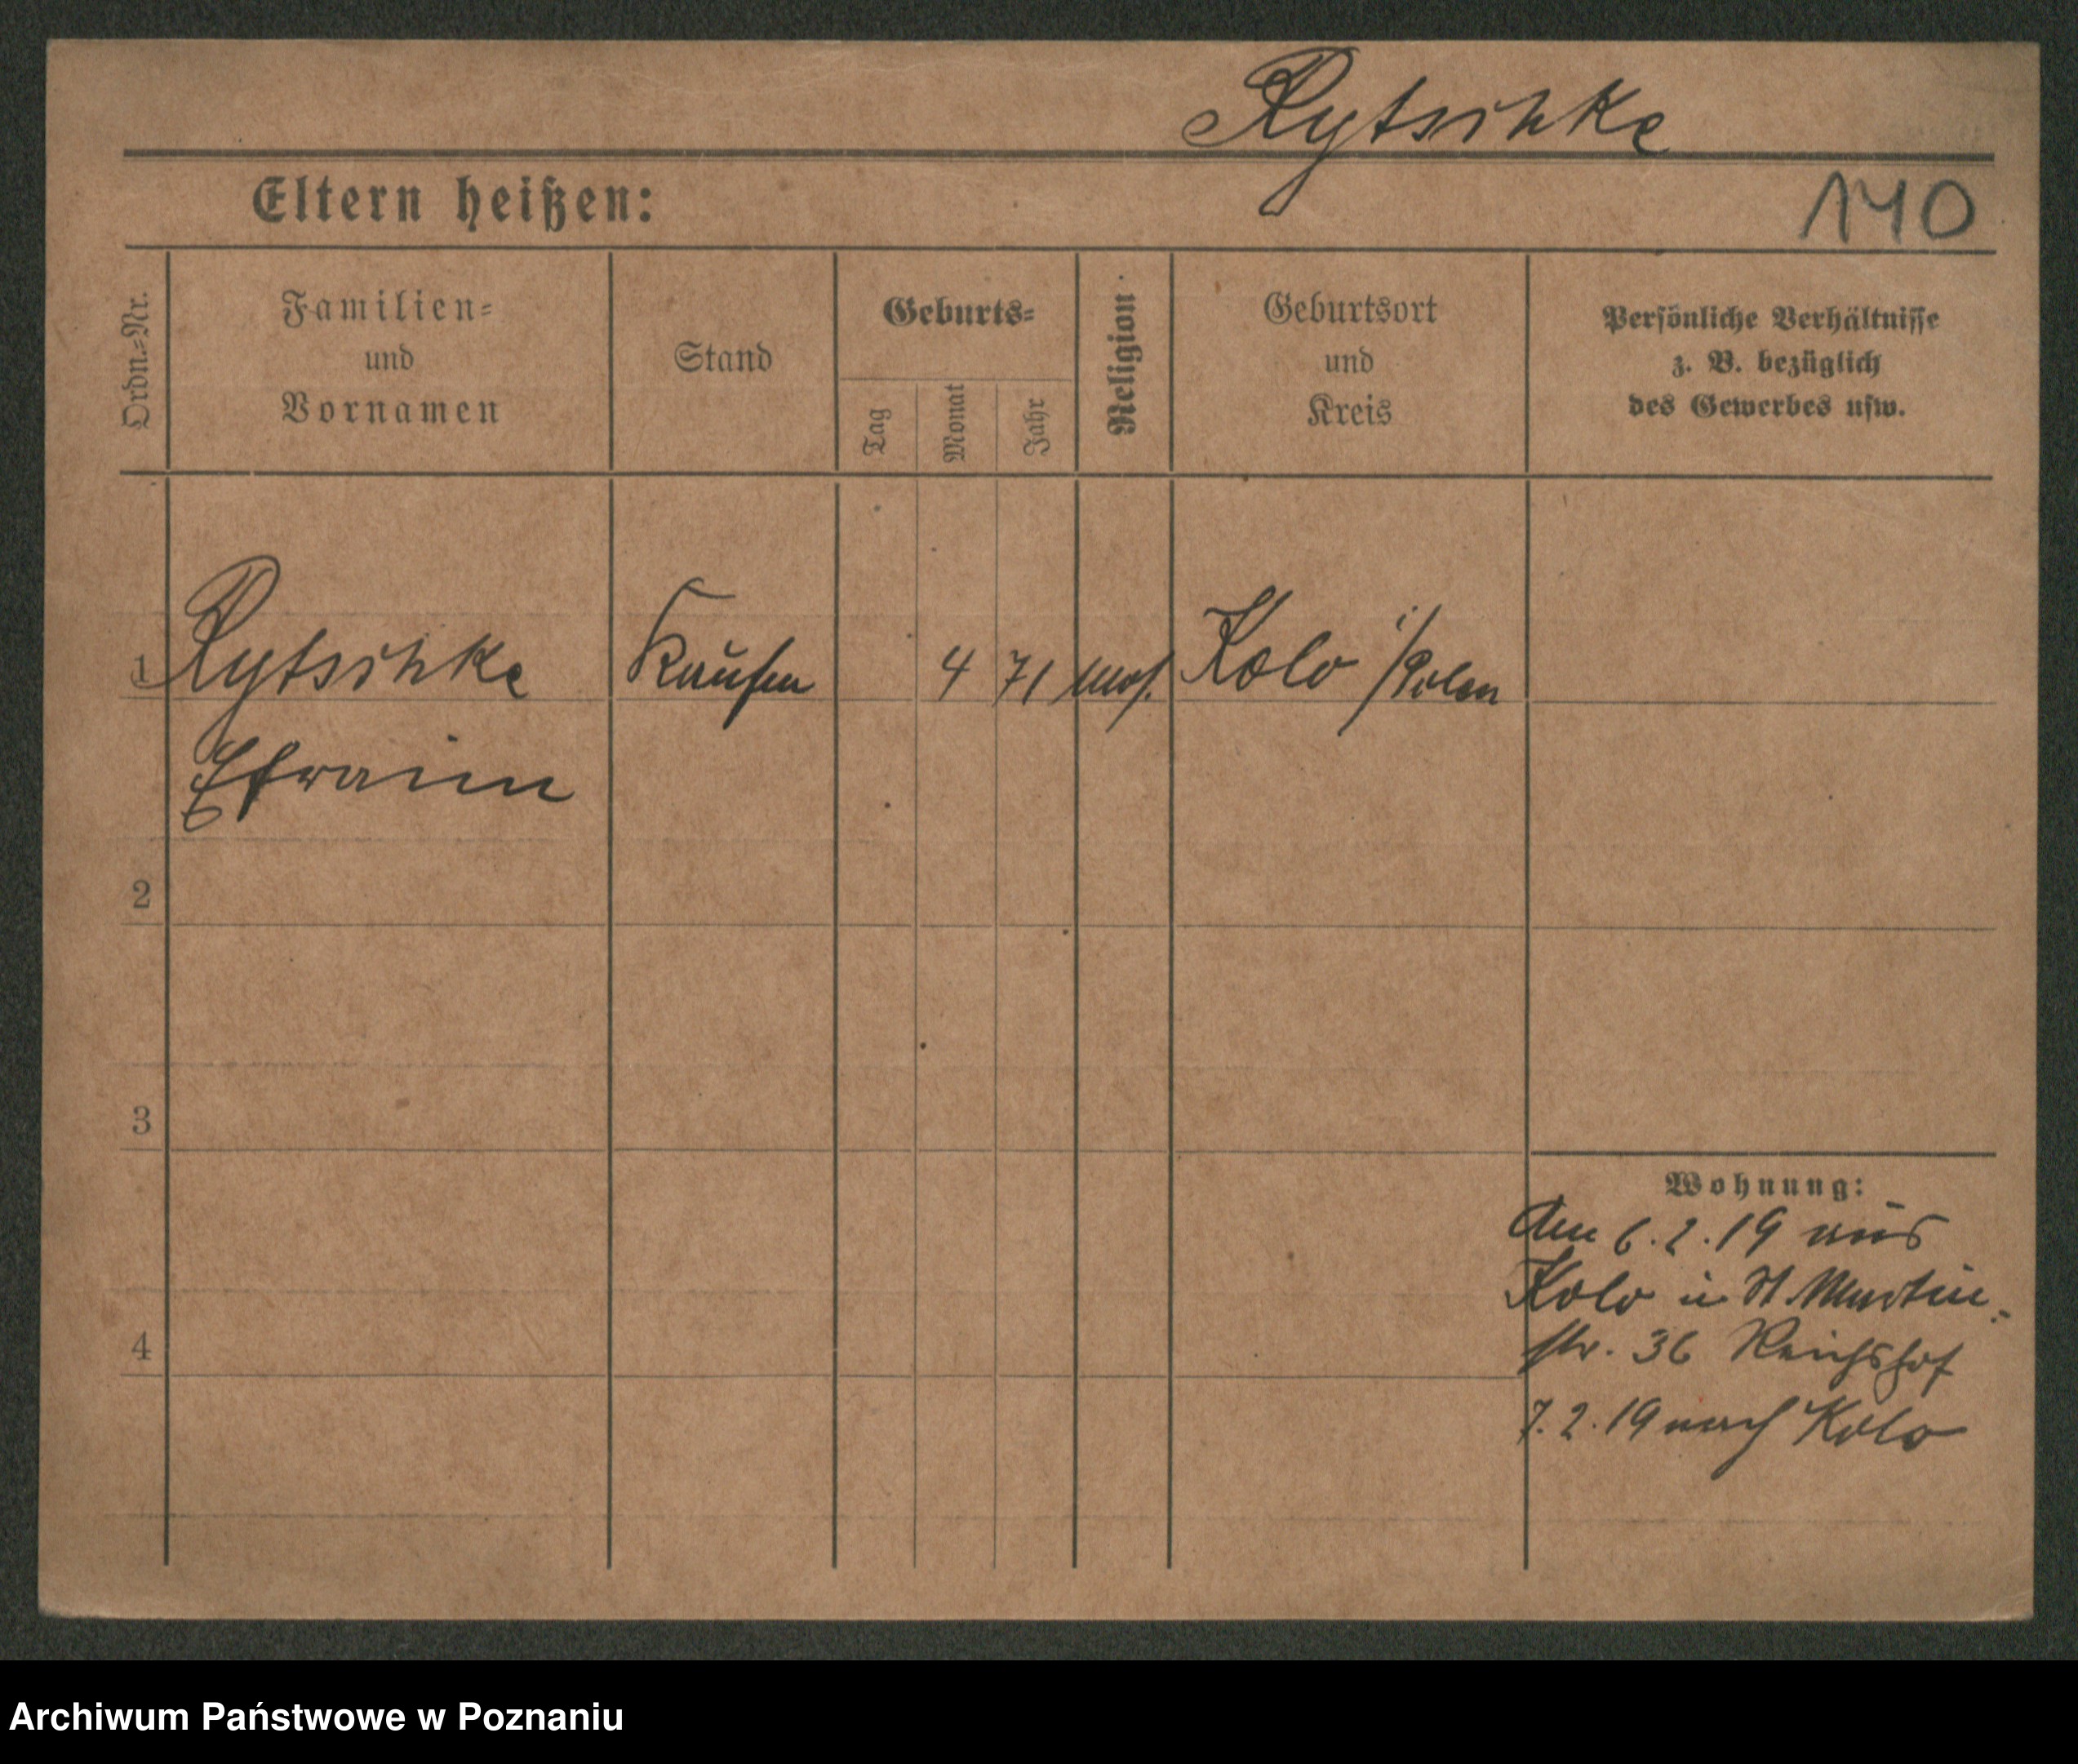 Rytschke
Eltern heißen:
140
Ordn.=Nr.
Familien=
und
Vornamen
Stand
Geburts=
Tag
Monat
Jahr
Religion
Geburtsort
und
Kreis
Persönliche Verhältnisse
z. B. bezüglich
des Gewerbes usw.
1 Rytschke Kaufm 4 71 mos. Kolo i/Polen
Efraim
2
3
4
Wohnung:
Am 6.2.19 aus
Kolo in St Martin-
str. 36 Reichshof
7.2.19 nach Kolo
Archiwum Państwowe w Poznaniu